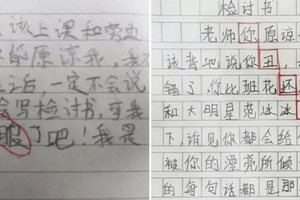 该上课和旁边
原谅我,我
之后,一定不会说
会写检讨书,可我
服了吧!我是
检讨书
老师你原谅
该背地说你丑,
错了,你比班花还
和大明星范冰冰
下,谁见你都会给
被你的漂亮所倾
的每句话都是那